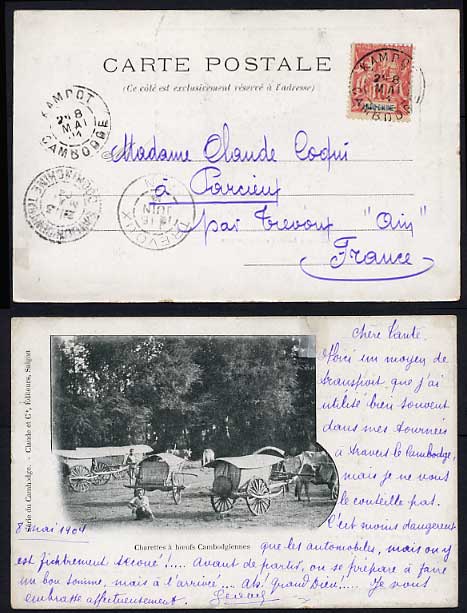 CARTE POSTALE
(Ce côté est exclusivement réservé à l'adresse)
KAMPOT
2E 8
MAI
04
CAMBODGE
KAMPOT
2E 8
MAI
CAMBODGE
INDO-CHINE
Madame Claude Coqui
à Parcieux
par Trevoux "Ain"
France
TREVOUX
16
JUIN
COCHINCHINE
Série du Cambodge. - Claude et Cie, Éditeurs, Saigon
Charettes à bœufs Cambodgiennes
8 mai 1904
Chère Tante
Voici un moyen de
transport que j'ai
utilisé bien souvent
dans mes tournées
à travers le Cambodge,
mais je ne vous
le conseille pas.
C'est moins dangereux
que les automobiles, mais on y
est fichtrement secoué!..... Avant de partir, on se prépare à faire
un bon somme, mais à l'arrivée... Ah! Grand Dieu!..... Je vous
embrasse affectueusement.